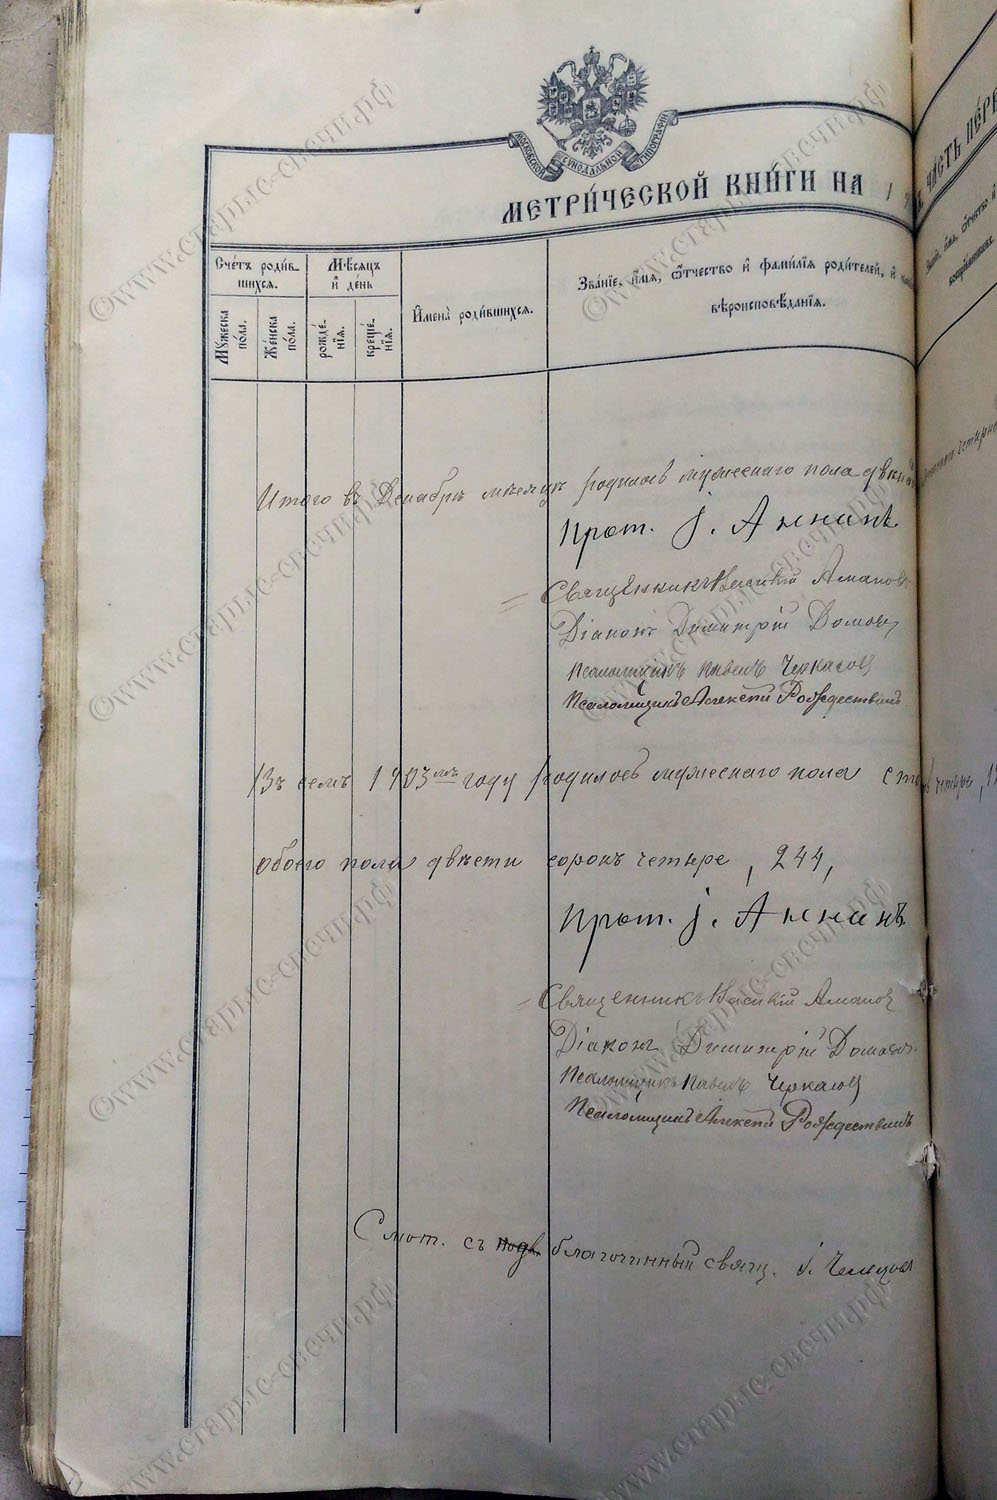 МОСКОВСКОЙ СѴНОДАЛЬНОЙ ТИПОГРАФІИ
МЕТРИ́ЧЕСКОЙ КНИ́ГИ НА 1
Ҁ ЧА́СТЬ ПЕ́РВ
Сче́тъ роди́в-
шихся.
Мѣ́сяцъ
и҆ де́нь
И҆мена̀ роди́вшихся.
Зва́нїе, и҆́мя, ѻ҆́тчество и҆ фами́лїя роди́телей, и҆
вѣроисповѣ́данїя.
Зва́нїе, и҆́мя, ѻ҆́тчество и҆
воспрїе́мниковъ.
Мꙋ́жеска
по́ла.
Же́нска
по́ла.
рожде́-
нїя.
креще́-
нїя.
Итого въ Декабрѣ мѣсяцѣ родилось мужескаго пола
Прот. І. Аннинъ
Священникъ Василій Аманов
Діаконъ Димитрій Домовъ
Псаломщикъ Павелъ Черкасовъ
Псаломщикъ Алексѣй Рождествинъ
Въ семъ 1903мъ году родилось мужескаго пола сто четыре,
обоего пола двѣсти сорокъ четыре, 244,
Прот. І. Аннинъ
Священникъ Василій Аманов
Діаконъ Димитрій Домовъ
Псаломщикъ Павелъ Черкасовъ
Псаломщикъ Алексѣй Рождествинъ
Смот. съ подв. благочинный свящ. І.
©www.старые-свечи.рф